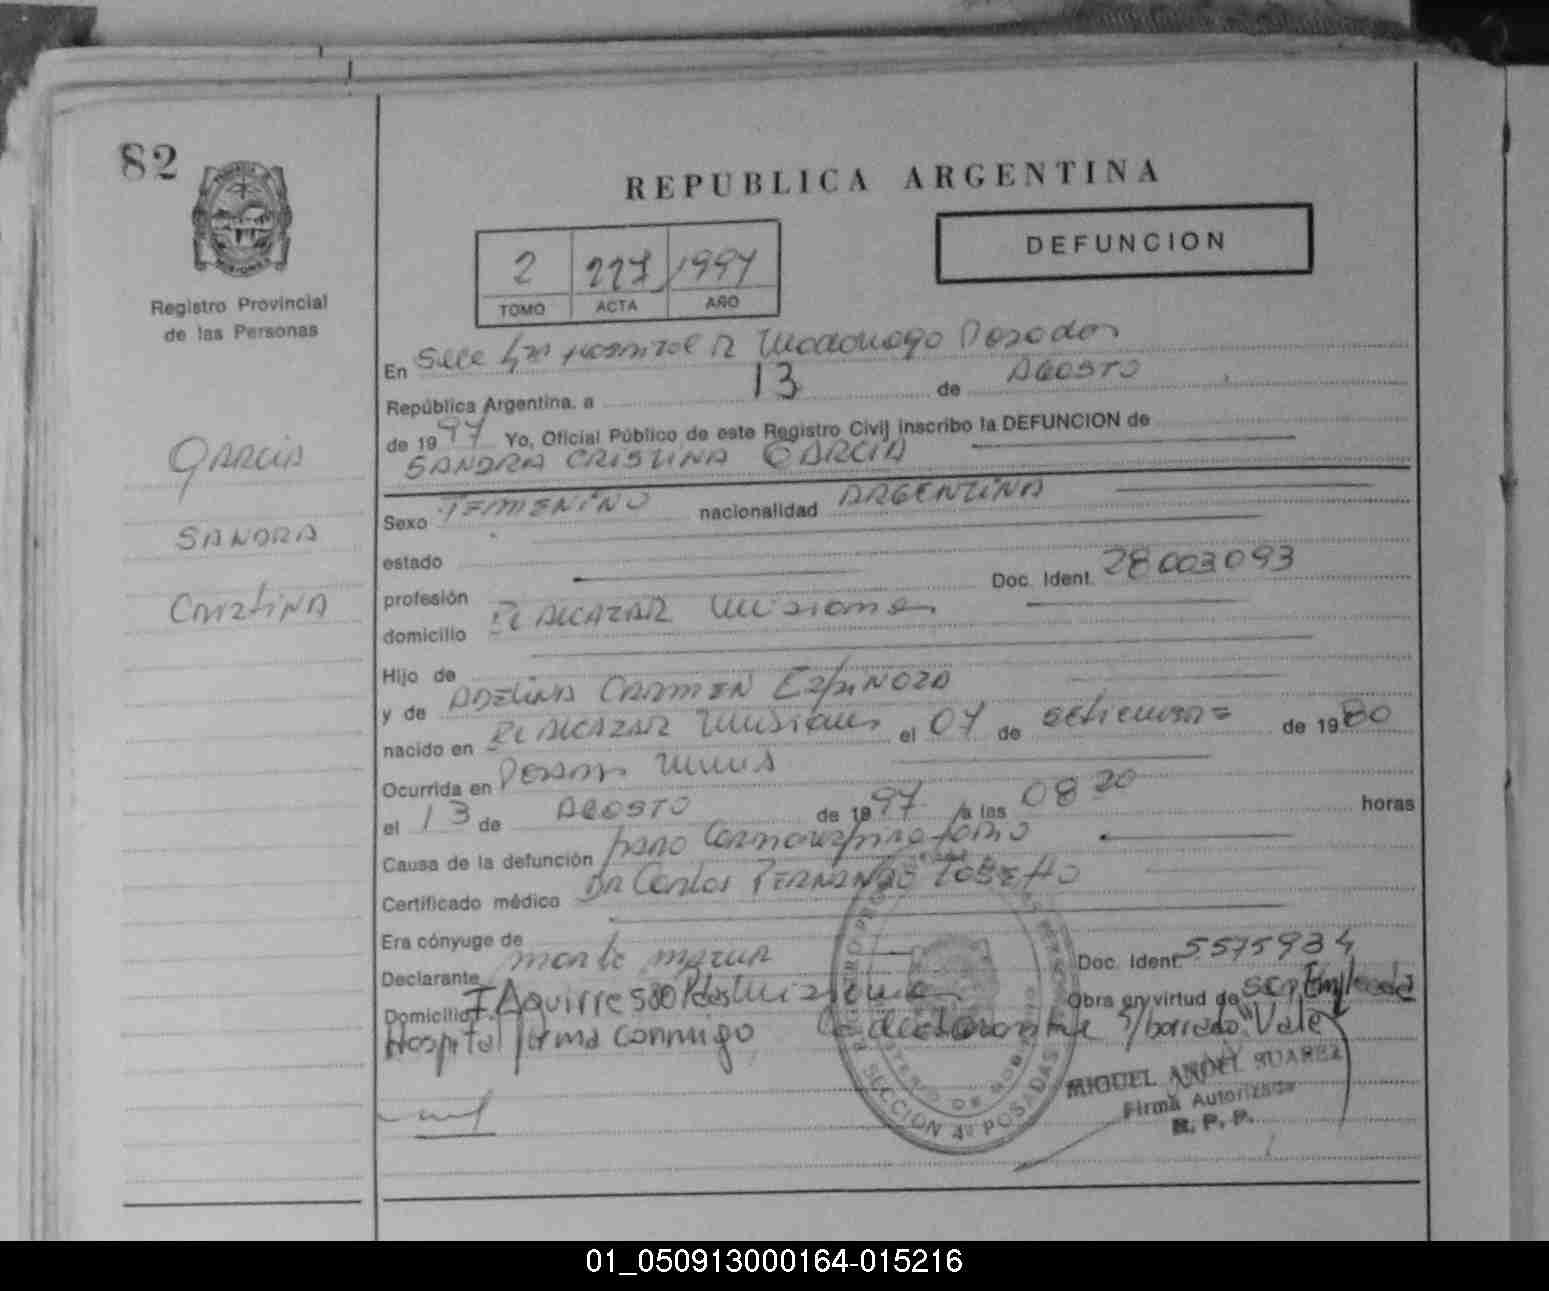 82
REPUBLICA ARGENTINA
DEFUNCION
2 227 1997
TOMO ACTA AÑO
Registro Provincial
de las Personas
En Hospital R Madariaga Posadas
República Argentina, a 13 de AGOSTO
de 1997 Yo, Oficial Público de este Registro Civil inscribo la DEFUNCION de
SANDRA CRISTINA GARCIA
GARCIA
SANDRA
CRISTINA
Sexo FEMENINO nacionalidad ARGENTINA
estado
profesión Doc. Ident. 28003093
domicilio El ALCAZAR Misiones
Hijo de
y de ADELINA CARMEN EspINOZA
nacido en El ALCAZAR Misiones el 07 de setiembre de 1980
Ocurrida en Posadas Mnes
el 13 de AGOSTO de 1997 a las 08 20 horas
Causa de la defunción paro Cardiorespiratorio
Certificado médico DR Carlos FERNANDO
Era cónyuge de
Declarante Doc. Ident. 5575934
Domicilio F. Aguirre 580 Pdas Misiones Obra en virtud de ser Empleada
Hospital firma conmigo la declarante S/borrado "Vale"
SECCION 4ª POSADAS
MIGUEL ANGEL SUAREZ
Firma Autorizada
R. P. P.
01_050913000164-015216